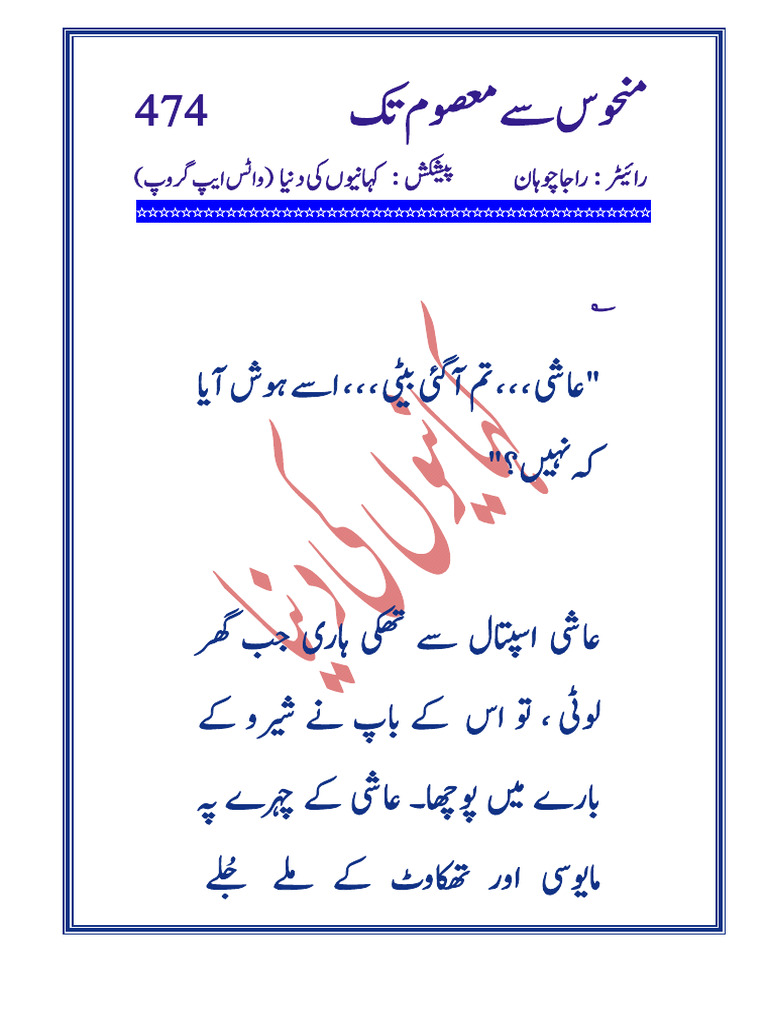 منحوس سے معصوم تک 474
رائیٹر : راجا چوہان پیشکش : کہانیوں کی دنیا (واٹس ایپ گروپ)
☆☆☆☆☆☆☆☆☆☆☆☆☆☆☆☆☆☆☆☆☆☆☆☆☆☆☆☆☆☆☆☆☆☆☆☆☆☆☆☆☆☆☆☆☆☆
؎
"عاشی،،، تم آگئی بیٹی،،، اسے ہوش آیا
کہ نہیں؟"
کہانیوں کی دنیا
عاشی اسپتال سے تھکی ہاری جب گھر
لوٹی، تو اس کے باپ نے شیرو کے
بارے میں پوچھا۔ عاشی کے چہرے پہ
مایوسی اور تھکاوٹ کے ملے جُلے